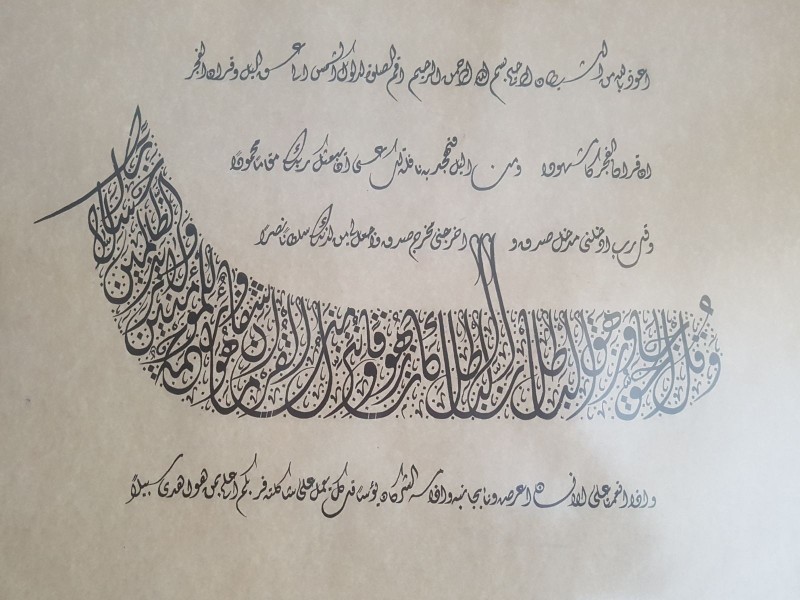 اعوذ بالله من الشيطان الرجيم بسم الله الرحمن الرحيم اقم الصلوة لدلوك الشمس الى غسق اليل وقران الفجر
ان قران الفجر كان مشهودا ومن اليل فتهجد به نافلة لك عسى ان يبعثك ربك مقاما محمودا
وقل رب ادخلني مدخل صدق و اخرجني مخرج صدق واجعل لي من لدنك سلطانا نصيرا
وقل جاء الحق وزهق الباطل ان الباطل كان زهوقا وننزل من القرآن ما هو شفاء ورحمة للمؤمنين ولا يزيد الظالمين الا خسارا
واذا انعمنا على الانسان اعرض ونا بجانبه واذا مسه الشر كان يؤسا قل كل يعمل على شاكلته فربكم اعلم بمن هو اهدى سبيلا